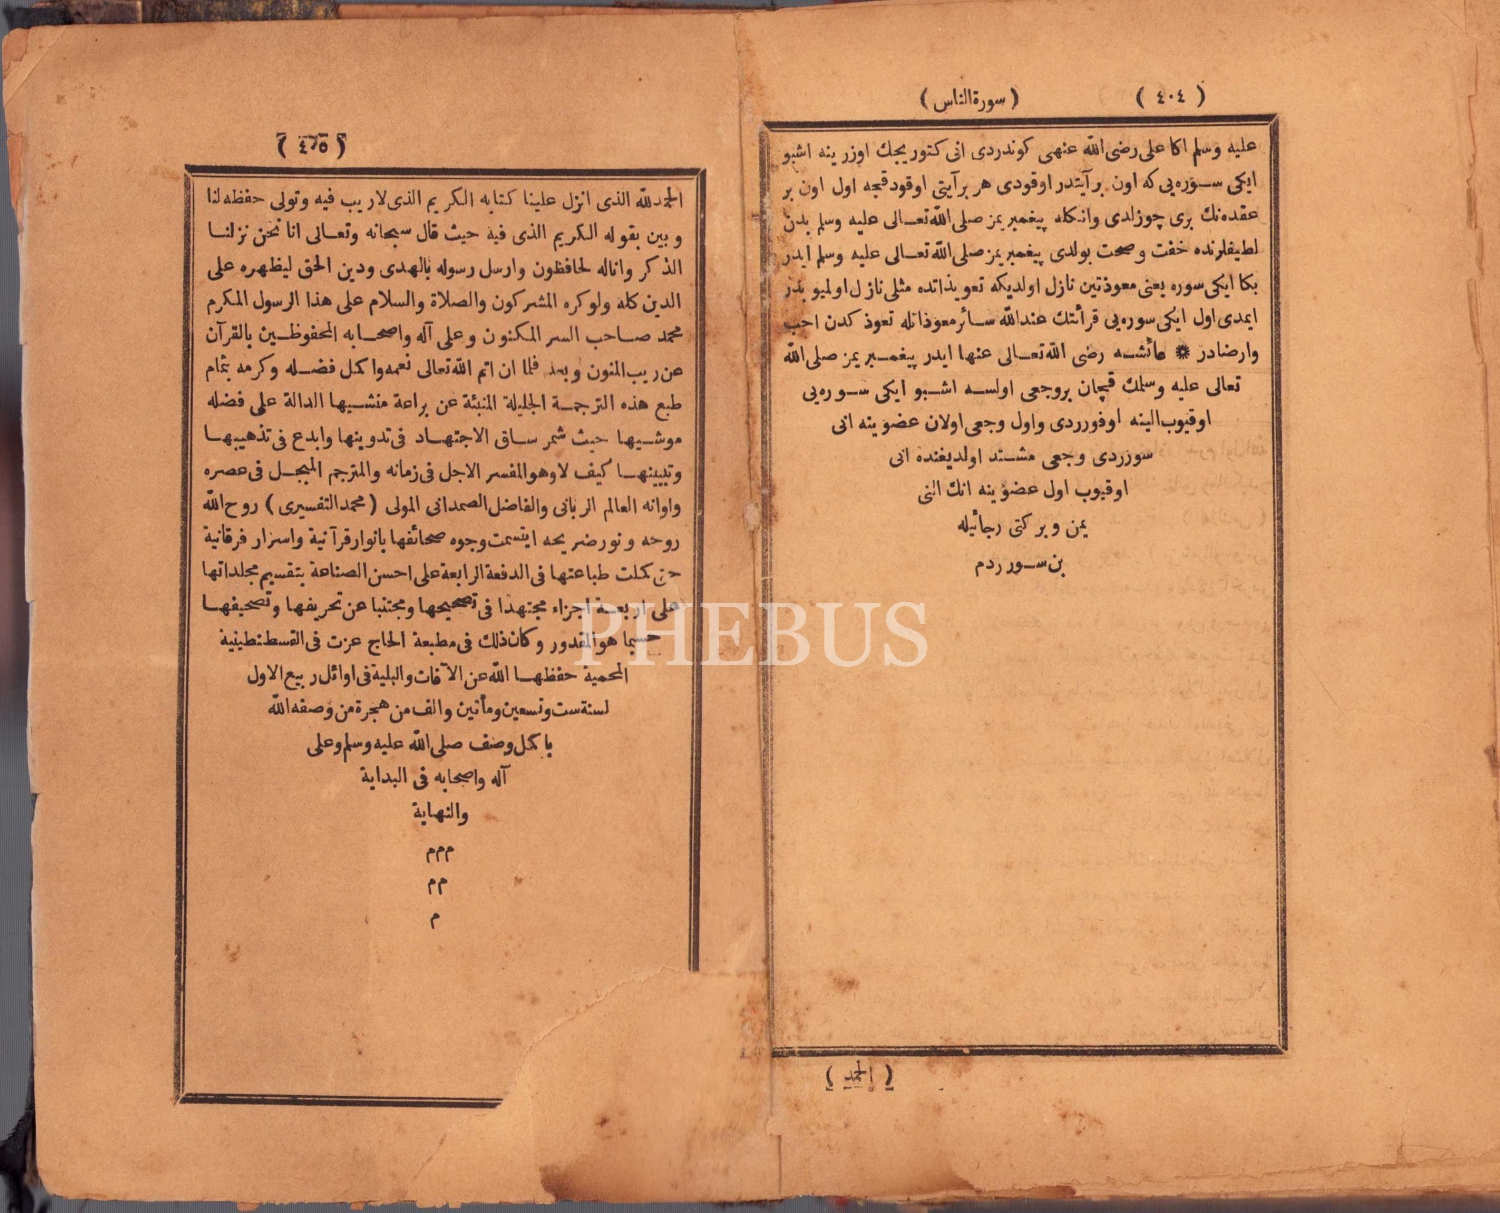 ( ٤٠٤ ) ( سورة الناس )
عليه وسلم اكا على رضى الله عنهى كوندردى انى كتوريجك اوزرينه اشبو
ايكى سوره‌يى كه اون برآيتدر اوقودى هر برآيتى اوقودقجه اول اون بر
عقده‌نك برى چوزلدى وانكله پيغمبريمز صلى الله تعالى عليه وسلم بدن
لطيفلرنده خفت وصحت بولدى پيغمبريمز صلى الله تعالى عليه وسلم ايدر
بكا ايكى سوره يعنى معوذتين نازل اولديكه تعويذاتده مثلى نازل اولميوبدر
ايمدى اول ايكى سوره‌يى قرائتك عندالله سائر معوذاتله تعوذ كدن احب
وارضادر ❋ عائشه رضى الله تعالى عنها ايدر پيغمبريمز صلى الله
تعالى عليه وسلمك قچان بروجعى اولسه اشبو ايكى سوره‌يى
اوقيوب الينه اوفوردى واول وجعى اولان عضوينه انى
سوزردى وجعى مشتد اولديغنده انى
اوقيوب اول عضوينه انك النى
يمن وبركتى رجائيله
بن سوردم
( الحمد )
( ٤٠٥ )
الحمدلله الذى انزل علينا كتابه الكريم الذى لاريب فيه وتولى حفظه لنا
وبين بقوله الكريم الذى فيه حيث قال سبحانه وتعالى انا نحن نزلنا
الذكر واناله لحافظون وارسل رسوله بالهدى ودين الحق ليظهره على
الدين كله ولوكره المشركون والصلاة والسلام على هذا الرسول المكرم
محمد صاحب السر المكنون وعلى آله واصحابه المحفوظين بالقرآن
عن ريب المنون وبعد فلما ان اتم الله تعالى نعمه واكمل فضله وكرمه بتمام
طبع هذه الترجمة الجليلة المنبئة عن براعة منشيها الدالة على فضله
موشيها حيث شمر ساق الاجتهاد فى تدوينها وابدع فى تذهيبها
وتبيينها كيف لاوهو المفسر الاجل فى زمانه والمترجم المبجل فى عصره
واوانه العالم الربانى والفاضل الصمدانى المولى ( محمد التفسيرى ) روح الله
روحه ونور ضريحه ابتسمت وجوه صحائفها بانوار قرآنية واسرار فرقانية
حتى كملت طباعتها فى الدفعة الرابعة على احسن الصناعة بتقسيم مجلداتها
على اربعة اجزاء مجتهدا فى تصحيحها ومجتنبا عن تحريفها وتصحيفها
حسبما هو المقدور وكان ذلك فى مطبعة الحاج عزت فى القسطنطينية
المحمية حفظها الله عن الآفات والبلية فى اوائل ربيع الاول
لسنة ست وتسعين ومأتين والف من هجرة من وصفه الله
باكمل وصف صلى الله عليه وسلم وعلى
آله واصحابه فى البداية
والنهاية
م م م
م م
م
PHEBUS